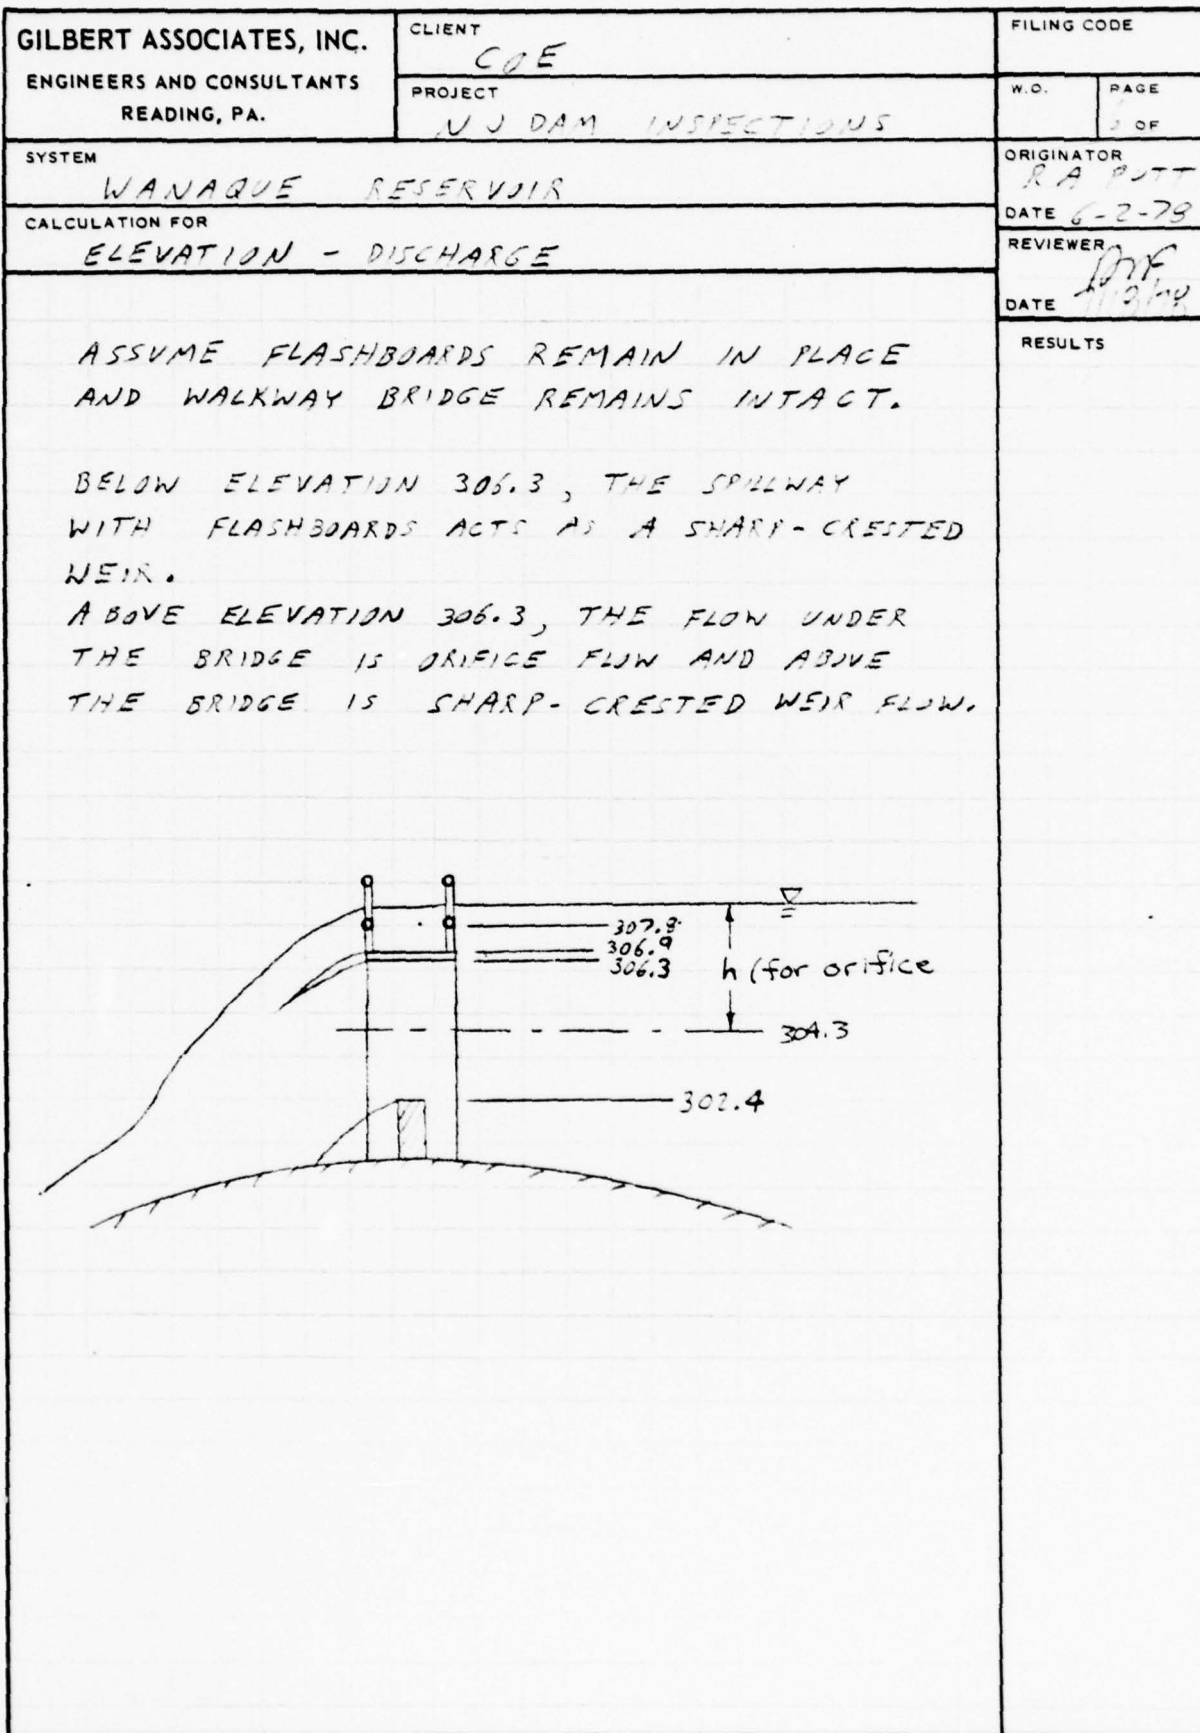 GILBERT ASSOCIATES, INC.
ENGINEERS AND CONSULTANTS
READING, PA.
CLIENT
COE
PROJECT
NJ DAM INSPECTIONS
FILING CODE
W.O.
PAGE
OF
SYSTEM
WANAQUE RESERVOIR
ORIGINATOR
R A POTT
DATE 6-2-78
CALCULATION FOR
ELEVATION - DISCHARGE
REVIEWER
DATE
RESULTS
ASSUME FLASHBOARDS REMAIN IN PLACE
AND WALKWAY BRIDGE REMAINS INTACT.
BELOW ELEVATION 306.3, THE SPILLWAY
WITH FLASHBOARDS ACTS AS A SHARP-CRESTED
WEIR.
ABOVE ELEVATION 306.3, THE FLOW UNDER
THE BRIDGE IS ORIFICE FLOW AND ABOVE
THE BRIDGE IS SHARP-CRESTED WEIR FLOW.
307.8
306.9
306.3
h (for orifice
304.3
302.4